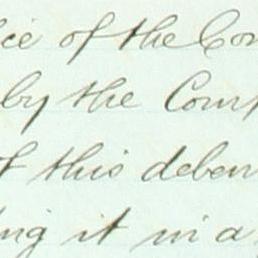 ice of the Con
by the Court
of this deben
ing it in a